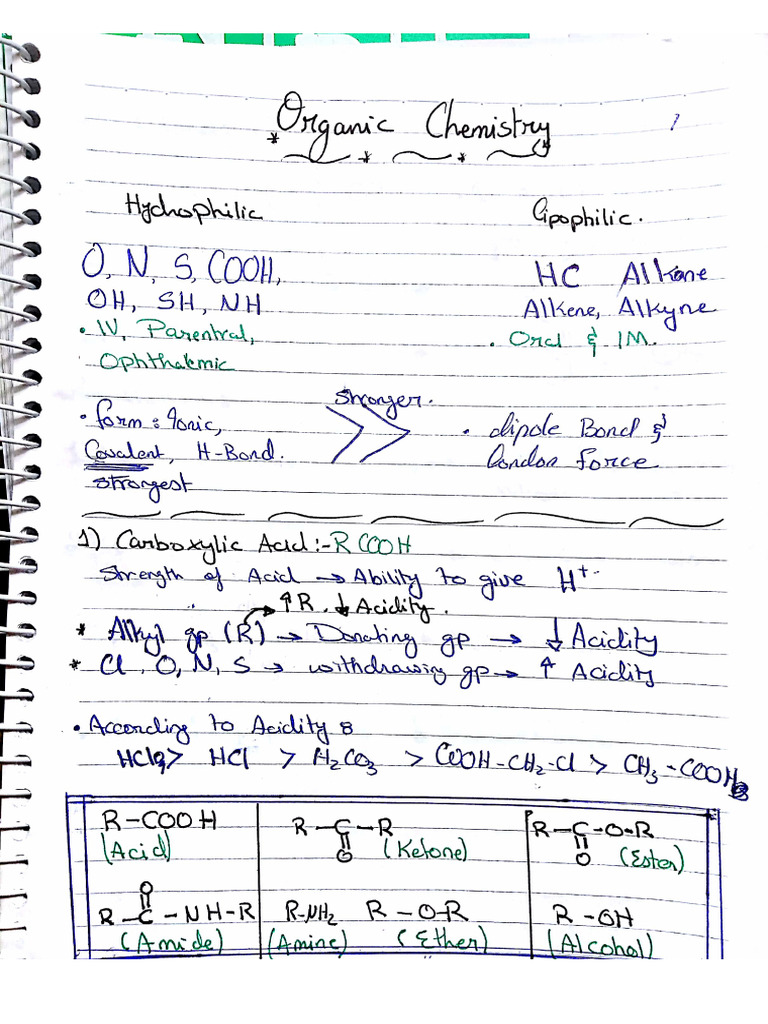 Organic Chemistry
1
Hydrophilic Lipophilic.
O, N, S, COOH, HC Alkane
OH, SH, NH Alkene, Alkyne
• IV, Parentral, • Oral & IM.
Ophthalmic
Stronger.
• form: Ionic, • dipole Bond &
Covalent, H-Bond. London Force
strongest
1) Carboxylic Acid:- R COOH
Strength of Acid → Ability to give H+
↑ R. ↓ Acidity.
* Alkyl gp (R) → Donating gp → ↓ Acidity
* Cl, O, N, S → withdrawing gp → ↑ Acidity
• According to Acidity 8
HClO4 > HCl > H2CO3 > COOH-CH2-Cl > CH3-COOH
R-COOH R-C-R R-C-O-R
(Acid) O (Ketone) O (Ester)
O
R-C-NH-R R-NH2 R-O-R R-OH
(Amide) (Amine) (Ether) (Alcohol)